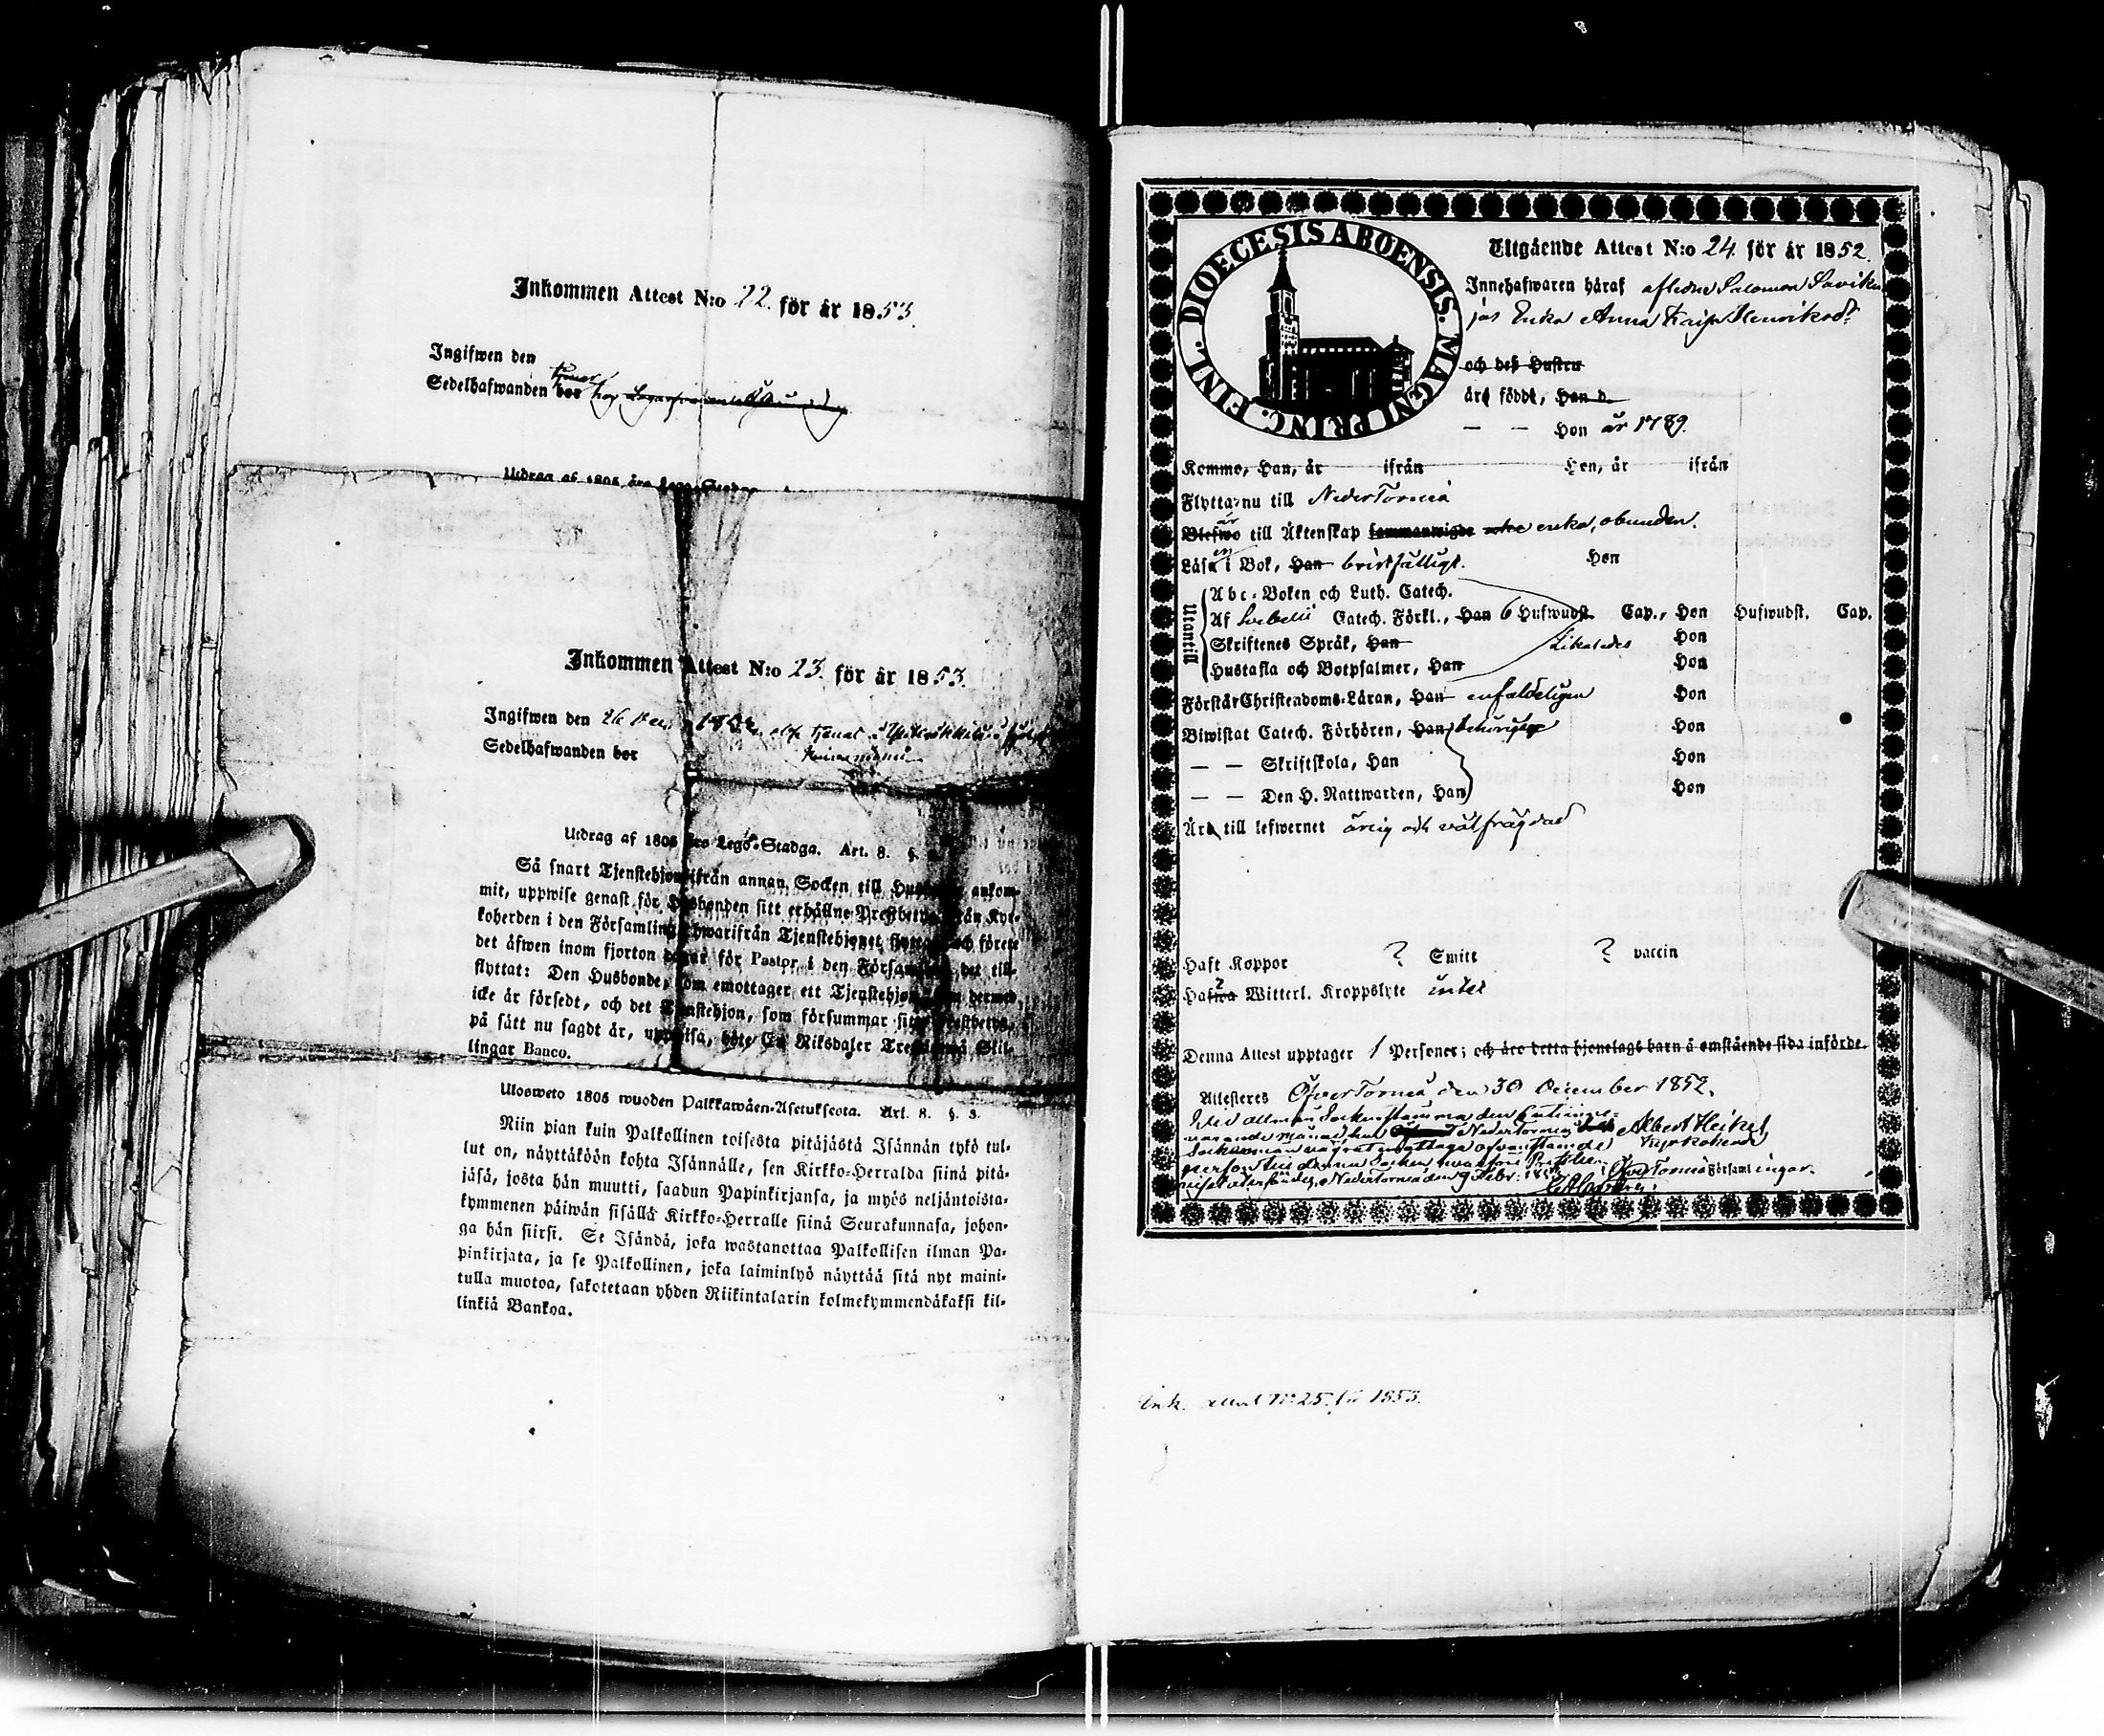 Inkommen Attest N:o 22. för år 1853.
Ingifwen den
Sedelhafwanden bor hos
Utdrag af 1805 års Lego-Stadga.
Inkommen Attest N:o 23. för år 1853.
Ingifwen den 26
Sedelhafwanden bor
Utdrag af 1805 års Lego-Stadga. Art. 8. §.
Så snart Tjenstehjon ifrån annan Socken till Husbonde ankom-
mit, uppwise genast för Husbonden sitt erhållne Prestbetyg från Kyr-
koherden i den Församling hwarifrån Tjenstehjonet flyttat och förete
det äfwen inom fjorton dagar för Pastor i den Församling det till-
flyttat: Den Husbonde, som emottager ett Tjenstehjon, som dermed
icke är försedt, och det Tjenstehjon, som försummar sitt Prestbetyg,
på sätt nu sagdt är, uppwisa, böte En Riksdaler Trettiotwå Skil-
lingar Banco.
Ulosweto 1805 wuoden Palkkawäen-Asetuksesta. Art. 8. §. 3.
Niin pian kuin Palkollinen toisesta pitäjästä Isännän tykö tul-
lut on, näyttäköön kohta Isännälle, sen Kirkko-Herralda siinä pitä-
jäsä, josta hän muutti, saadun Papinkirjansa, ja myös neljäntoista-
kymmenen päiwän sisällä Kirkko-Herralle siinä Seurakunnasa, johon-
ga hän siirsi. Se Isändä, joka wastanottaa Palkollisen ilman Pa-
pinkirjata, ja se Palkollinen, joka laiminlyö näyttää sitä nyt maini-
tulla muotoa, sakotetaan yhden Riikintalarin kolmekymmendäkaksi kil-
linkiä Bankoa.
DIOECESIS ABOENSIS. MAGNI PRINC. FINL.
Utgående Attest N:o 24. för år 1852.
Innehafwaren häraf aflidne Salomon Savika
jas Enka Anna Kajsa Henriksdr
och deß Hustru
äro födde, Han d.
— — Hon år 1789.
Komme, Han, år ifrån Hon, år ifrån
Flytta nu till Neder Torneå
är
Blefwo till Äktenskap sammanwigde enka, obunden.
Läsa i Bok, Han bristfälligt. Hon
Utantill
Abc-Boken och Luth. Catech.
Af Svebelii Catech. Förkl., Han 6 Hufwudst. Cap., Hon Hufwudst. Cap.
Skriftenes Språk, Han Likaledes Hon
Hustafla och Botpsalmer, Han Hon
Förstår Christendoms-Läran, Han enfaldeligen Hon
Biwistat Catech. Förhören, Han behörigen Hon
— — Skriftskola, Han Hon
— — Den H. Nattwarden, Han Hon
Äro till lefwernet ärlig och välfrägdad
Haft Koppor ? Smitt ? vaccin
Hafwa Witterl. Kroppslyte intet
Denna Attest upptager 1 Personer; och äro detta hjonelags barn å omstående sida införde.
Attesteras Öfver Torneå den 30 December 1852.
Albert Heikel
Kyrkoherde
Öfver Torneå Församlingar.
Ink. attest N:o 25. för 1853.